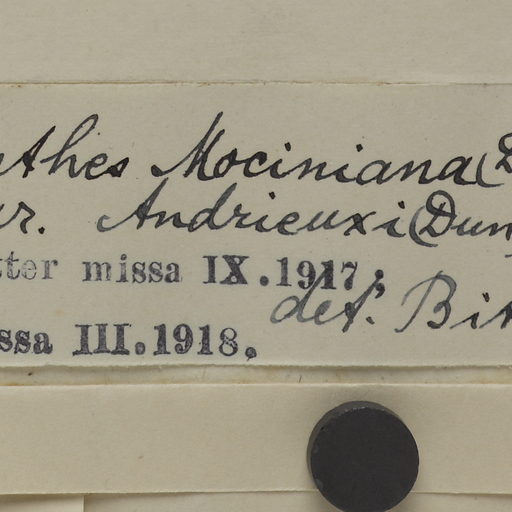 nthes Mociniana (D
ar. Andrieuxi (Dun
tter missa IX.1917;
det. Bitt
ssa III.1918,